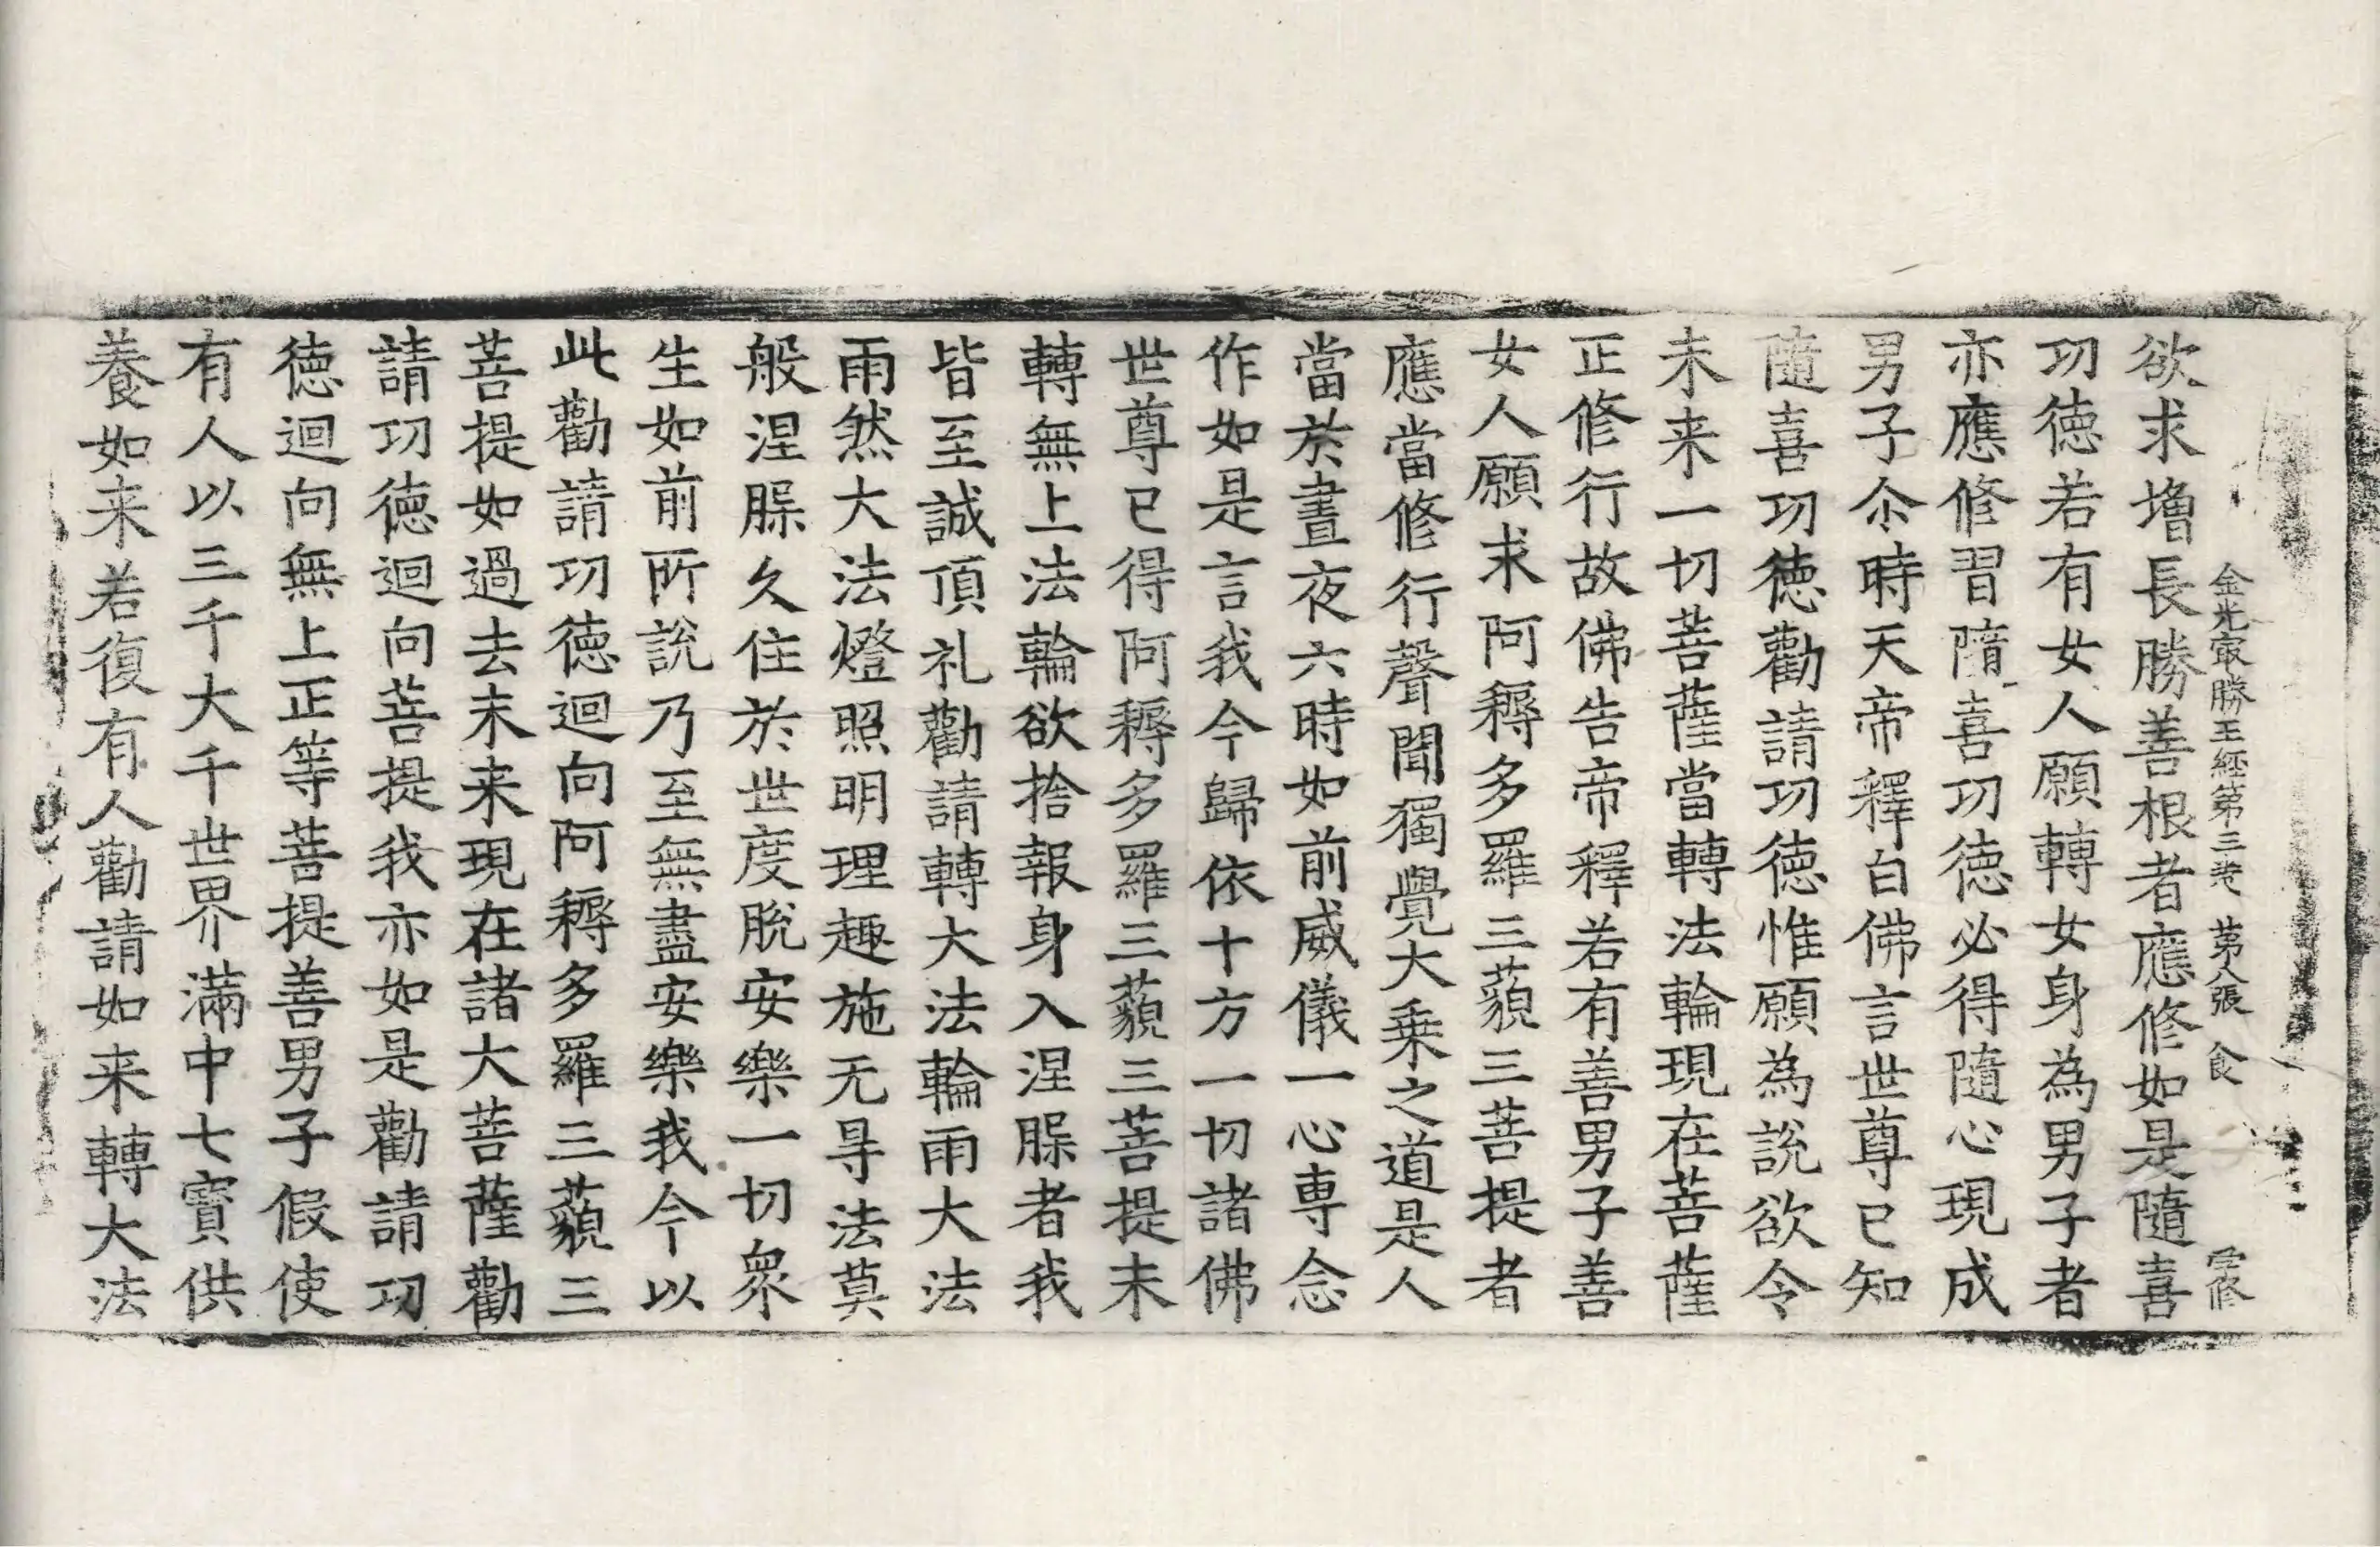 金光㝡勝王經第三卷 苐八張 食
欲求增長勝善根者應修如是隨喜
功徳若有女人願轉女身為男子者
亦應修習隨喜功徳必得隨心現成
男子尒時天帝釋白佛言世尊已知
隨喜功徳勸請功徳惟願為說欲令
未来一切菩薩當轉法輪現在菩薩
正修行故佛告帝釋若有善男子善
女人願求阿耨多羅三藐三菩提者
應當修行聲聞獨覺大乗之道是人
當於晝夜六時如前威儀一心専念
作如是言我今歸依十方一切諸佛
世尊已得阿耨多羅三藐三菩提未
轉無上法輪欲捨報身入涅槃者我
皆至誠頂礼勸請轉大法輪雨大法
雨然大法燈照明理趣施无㝵法莫
般涅槃久住於世度脫安樂一切衆
生如前所說乃至無盡安樂我今以
此勸請功徳迴向阿耨多羅三藐三
菩提如過去未来現在諸大菩薩勸
請功徳迴向菩提我亦如是勸請功
徳迴向無上正等菩提善男子假使
有人以三千大千世界滿中七寶供
養如来若復有人勸請如来轉大法